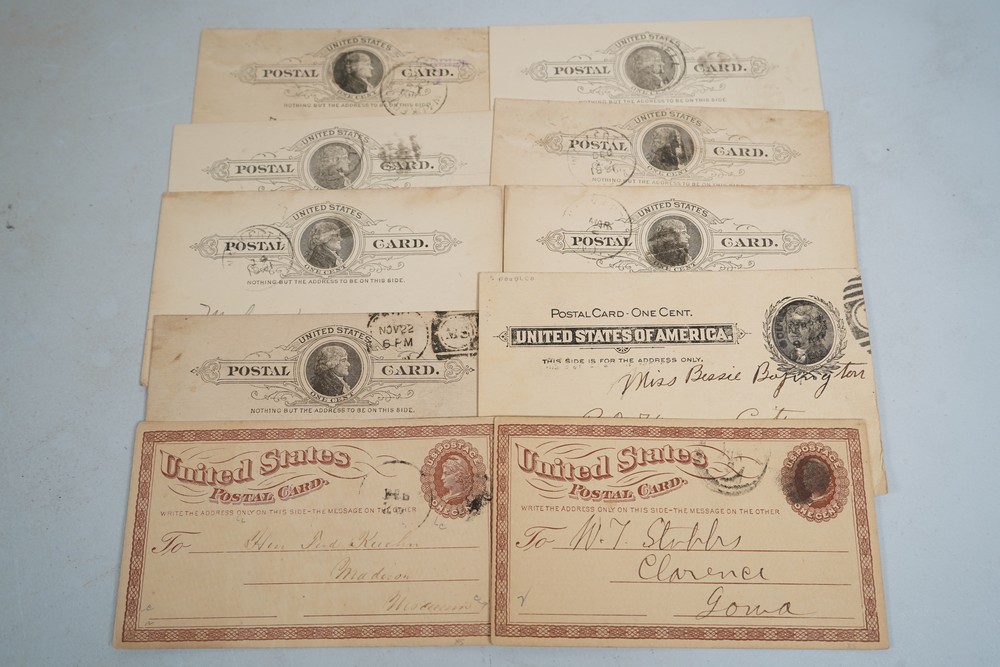 UNITED STATES
POSTAL CARD.
ONE CENT
NOTHING BUT THE ADDRESS TO BE ON THIS SIDE.
UNITED STATES
POSTAL CARD.
ONE CENT
NOTHING BUT THE ADDRESS TO BE ON THIS SIDE.
UNITED STATES
POSTAL CARD.
ONE CENT
UNITED STATES
POSTAL CARD.
DEC
NOTHING BUT THE ADDRESS TO BE ON THIS SIDE
UNITED STATES
POSTAL CARD.
ONE CENT
NOTHING BUT THE ADDRESS TO BE ON THIS SIDE.
UNITED STATES
POSTAL CARD.
MAR
ONE CENT
UNITED STATES
NOV 22
6 PM
POSTAL CARD.
ONE CENT
NOTHING BUT THE ADDRESS TO BE ON THIS SIDE.
POSTAL CARD - ONE CENT.
UNITED STATES OF AMERICA.
THIS SIDE IS FOR THE ADDRESS ONLY.
Miss Bessie Bofington
City
United States
POSTAL CARD.
U.S. POSTAGE
ONE CENT
FEB
WRITE THE ADDRESS ONLY ON THIS SIDE-THE MESSAGE ON THE OTHER
To
Madison
United States
POSTAL CARD.
U.S. POSTAGE
ONE CENT
WRITE THE ADDRESS ONLY ON THIS SIDE-THE MESSAGE ON THE OTHER
To W. T. Stubbs
Clarence
Iowa